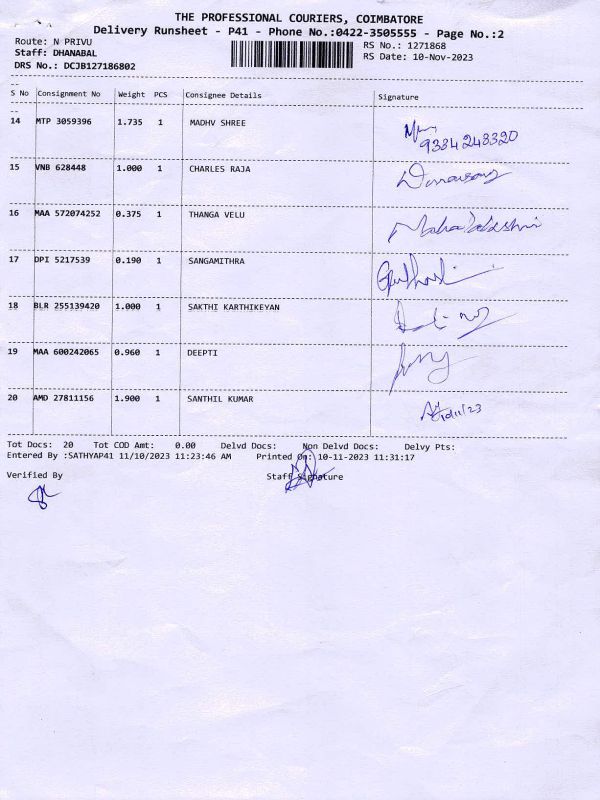 THE PROFESSIONAL COURIERS, COIMBATORE
Delivery Runsheet - P41 - Phone No.:0422-3505555 - Page No.:2
Route: N PRIVU
Staff: DHANABAL
DRS No.: DCJB127186802
RS No.: 1271868
RS Date: 10-Nov-2023
S No Consignment No Weight PCS Consignee Details Signature
14 MTP 3059396 1.735 1 MADHV SHREE
9384248320
15 VNB 628448 1.000 1 CHARLES RAJA
16 MAA 572074252 0.375 1 THANGA VELU
17 DPI 5217539 0.190 1 SANGAMITHRA
18 BLR 255139420 1.000 1 SAKTHI KARTHIKEYAN
19 MAA 600242065 0.960 1 DEEPTI
20 AMD 27811156 1.900 1 SANTHIL KUMAR
Tot Docs: 20 Tot COD Amt: 0.00 Delvd Docs: Non Delvd Docs: Delvy Pts:
Entered By :SATHYAP41 11/10/2023 11:23:46 AM Printed On: 10-11-2023 11:31:17
Verified By Staff Signature